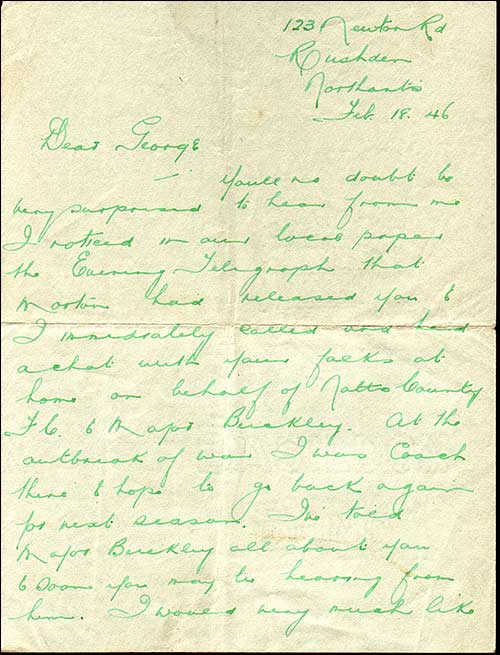 123 Newton Rd
Rushden
Northants
Feb. 18. 46
Dear George
Youll no doubt be
very surprised to hear from me
I noticed in our local paper
the Evening Telegraph that
Morton had released you &
I immediately called and had
a chat with your folks at
home on behalf of Notts County
F.C. & Major Buckley. At the
outbreak of war I was Coach
there & hope to go back again
for next season. Ive told
Major Buckley all about you
& soon you may be hearing from
him. I would very much like